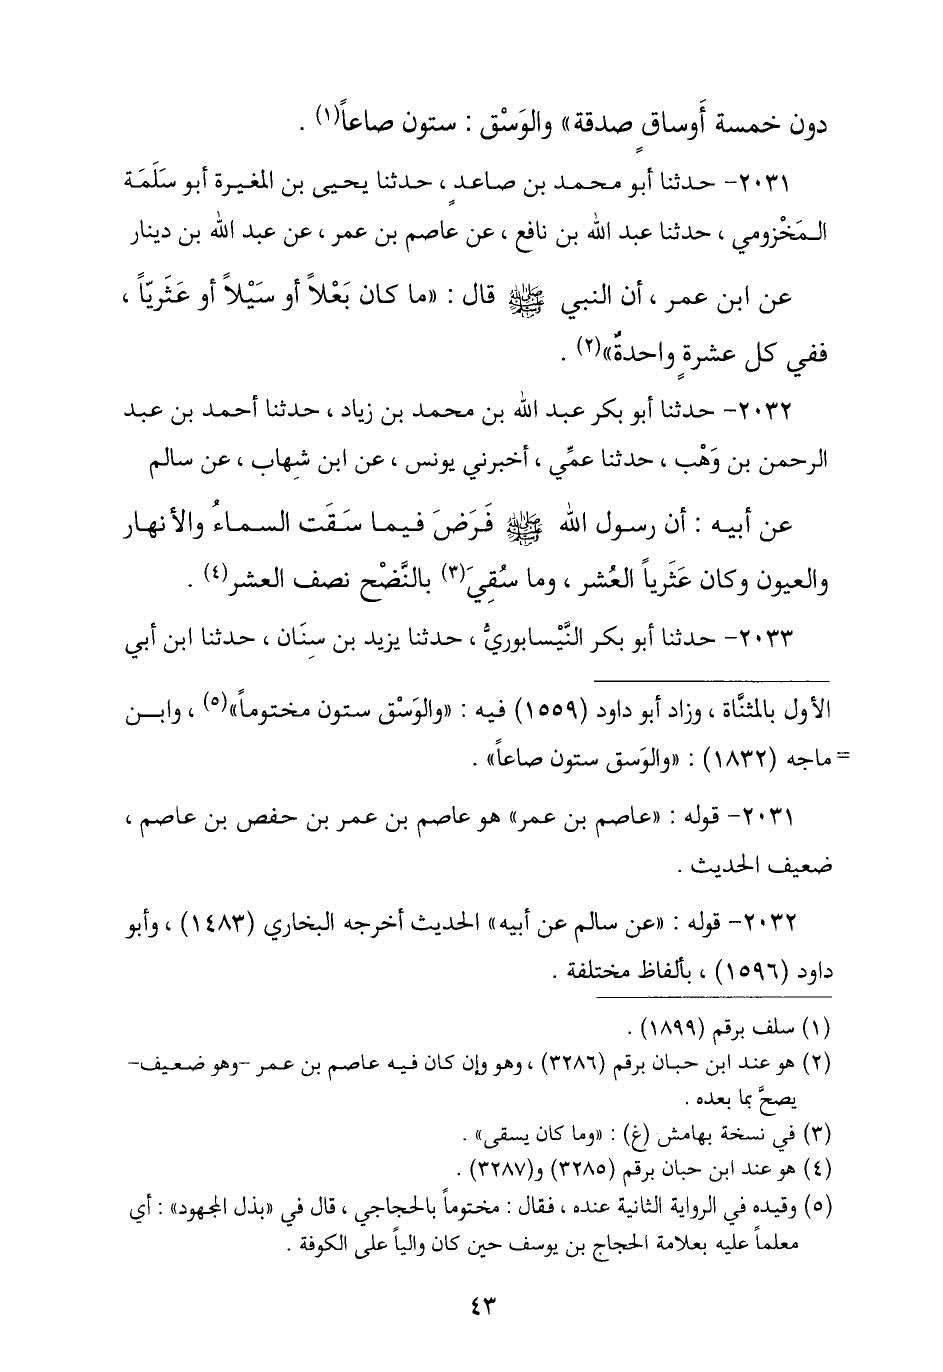 دون خمسة أَوساقٍ صدقة» والوَسْق : ستون صاعاً(١) .
٢٠٣١- حدثنا أبو محمد بن صاعدٍ ، حدثنا يحيى بن المغيرة أبو سَلَمَة
المَخْزومي ، حدثنا عبد الله بن نافع ، عن عاصم بن عمر ، عن عبد الله بن دينار
عن ابن عمر ، أن النبي ﷺ قال : «ما كان بَعْلاً أو سَيْلاً أو عَثَريّاً ،
ففي كل عشرةٍ واحدةٌ»(٢) .
٢٠٣٢- حدثنا أبو بكر عبد الله بن محمد بن زياد ، حدثنا أحمد بن عبد
الرحمن بن وَهْب ، حدثنا عمِّي ، أخبرني يونس ، عن ابن شِهاب ، عن سالم
عن أبيه : أن رسول الله ﷺ فَرَضَ فيما سَقَت السماءُ والأنهار
والعيون وكان عَثَرياً العُشر ، وما سُقِيَ(٣) بالنَّضْح نصف العشر(٤) .
٢٠٣٣- حدثنا أبو بكر النَّيْسابوريُّ ، حدثنا يزيد بن سِنَان ، حدثنا ابن أبي
الأول بالمثنَّاة ، وزاد أبو داود (١٥٥٩) فيه : «والوَسْق ستون مختوماً»(٥) ، وابن
= ماجه (١٨٣٢) : «والوَسق ستون صاعاً» .
٢٠٣١- قوله : «عاصم بن عمر» هو عاصم بن عمر بن حفص بن عاصم ،
ضعيف الحديث .
٢٠٣٢- قوله : «عن سالم عن أبيه» الحديث أخرجه البخاري (١٤٨٣) ، وأبو
داود (١٥٩٦) ، بألفاظ مختلفة .
(١) سلف برقم (١٨٩٩) .
(٢) هو عند ابن حبان برقم (٣٢٨٦) ، وهو وإن كان فيه عاصم بن عمر -وهو ضعيف-
يصحَّ بما بعده .
(٣) في نسخة بهامش (غ) : «وما كان يسقى» .
(٤) هو عند ابن حبان برقم (٣٢٨٥) و(٣٢٨٧) .
(٥) وقيده في الرواية الثانية عنده ، فقال : مختوماً بالحجاجي ، قال في «بذل المجهود» : أي
معلماً عليه بعلامة الحجاج بن يوسف حين كان والياً على الكوفة .
٤٣